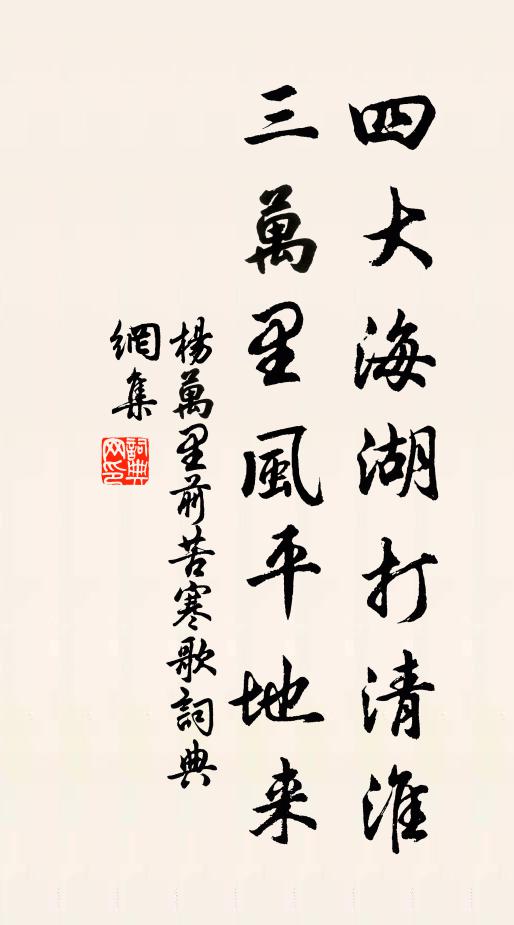 四大海湖打清淮
三萬里風平地来
楊萬里前苦寒歌詞典
網集
詞典網印